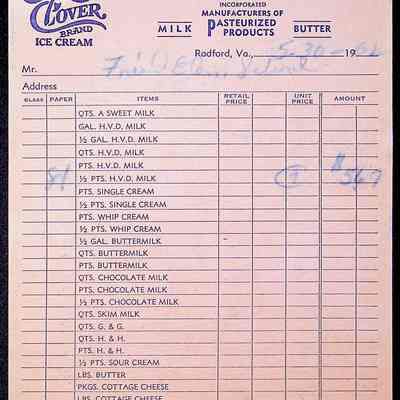 CLOVER
BRAND
ICE CREAM
INCORPORATED
MANUFACTURERS OF
MILK PASTEURIZED PRODUCTS BUTTER
Radford, Va., 5-30- 19
Mr.
Address
GLASS PAPER ITEMS RETAIL PRICE UNIT PRICE AMOUNT
QTS. A SWEET MILK
GAL. H.V.D. MILK
½ GAL. H.V.D. MILK
QTS. H.V.D. MILK
PTS. H.V.D. MILK
81 ½ PTS. H.V.D. MILK 7 $5.67
PTS. SINGLE CREAM
½ PTS. SINGLE CREAM
PTS. WHIP CREAM
½ PTS. WHIP CREAM
½ GAL. BUTTERMILK
QTS. BUTTERMILK
PTS. BUTTERMILK
QTS. CHOCOLATE MILK
PTS. CHOCOLATE MILK
½ PTS. CHOCOLATE MILK
QTS. SKIM MILK
QTS. G. & G.
QTS. H. & H.
PTS. H. & H.
½ PTS. SOUR CREAM
LBS. BUTTER
PKGS. COTTAGE CHEESE
LBS. COTTAGE CHEESE